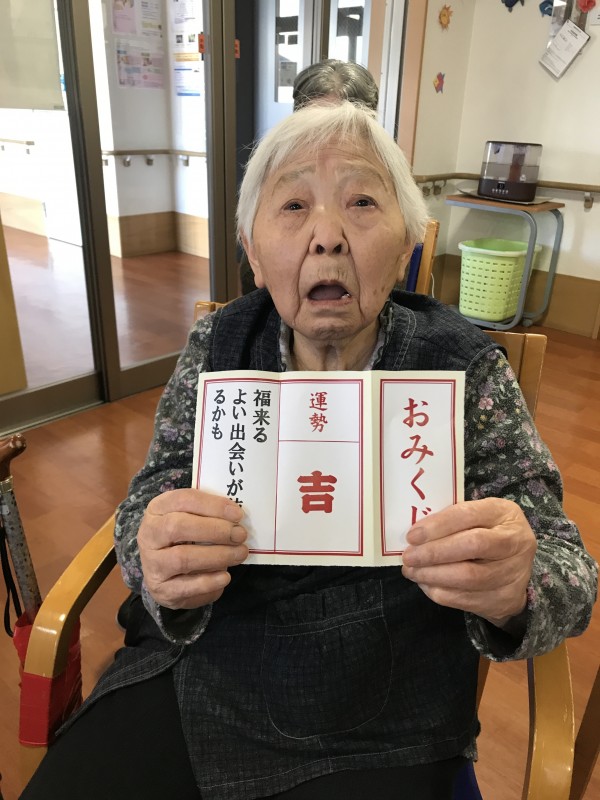 おみくじ
運勢
吉
福来る
よい出会いが
るかも